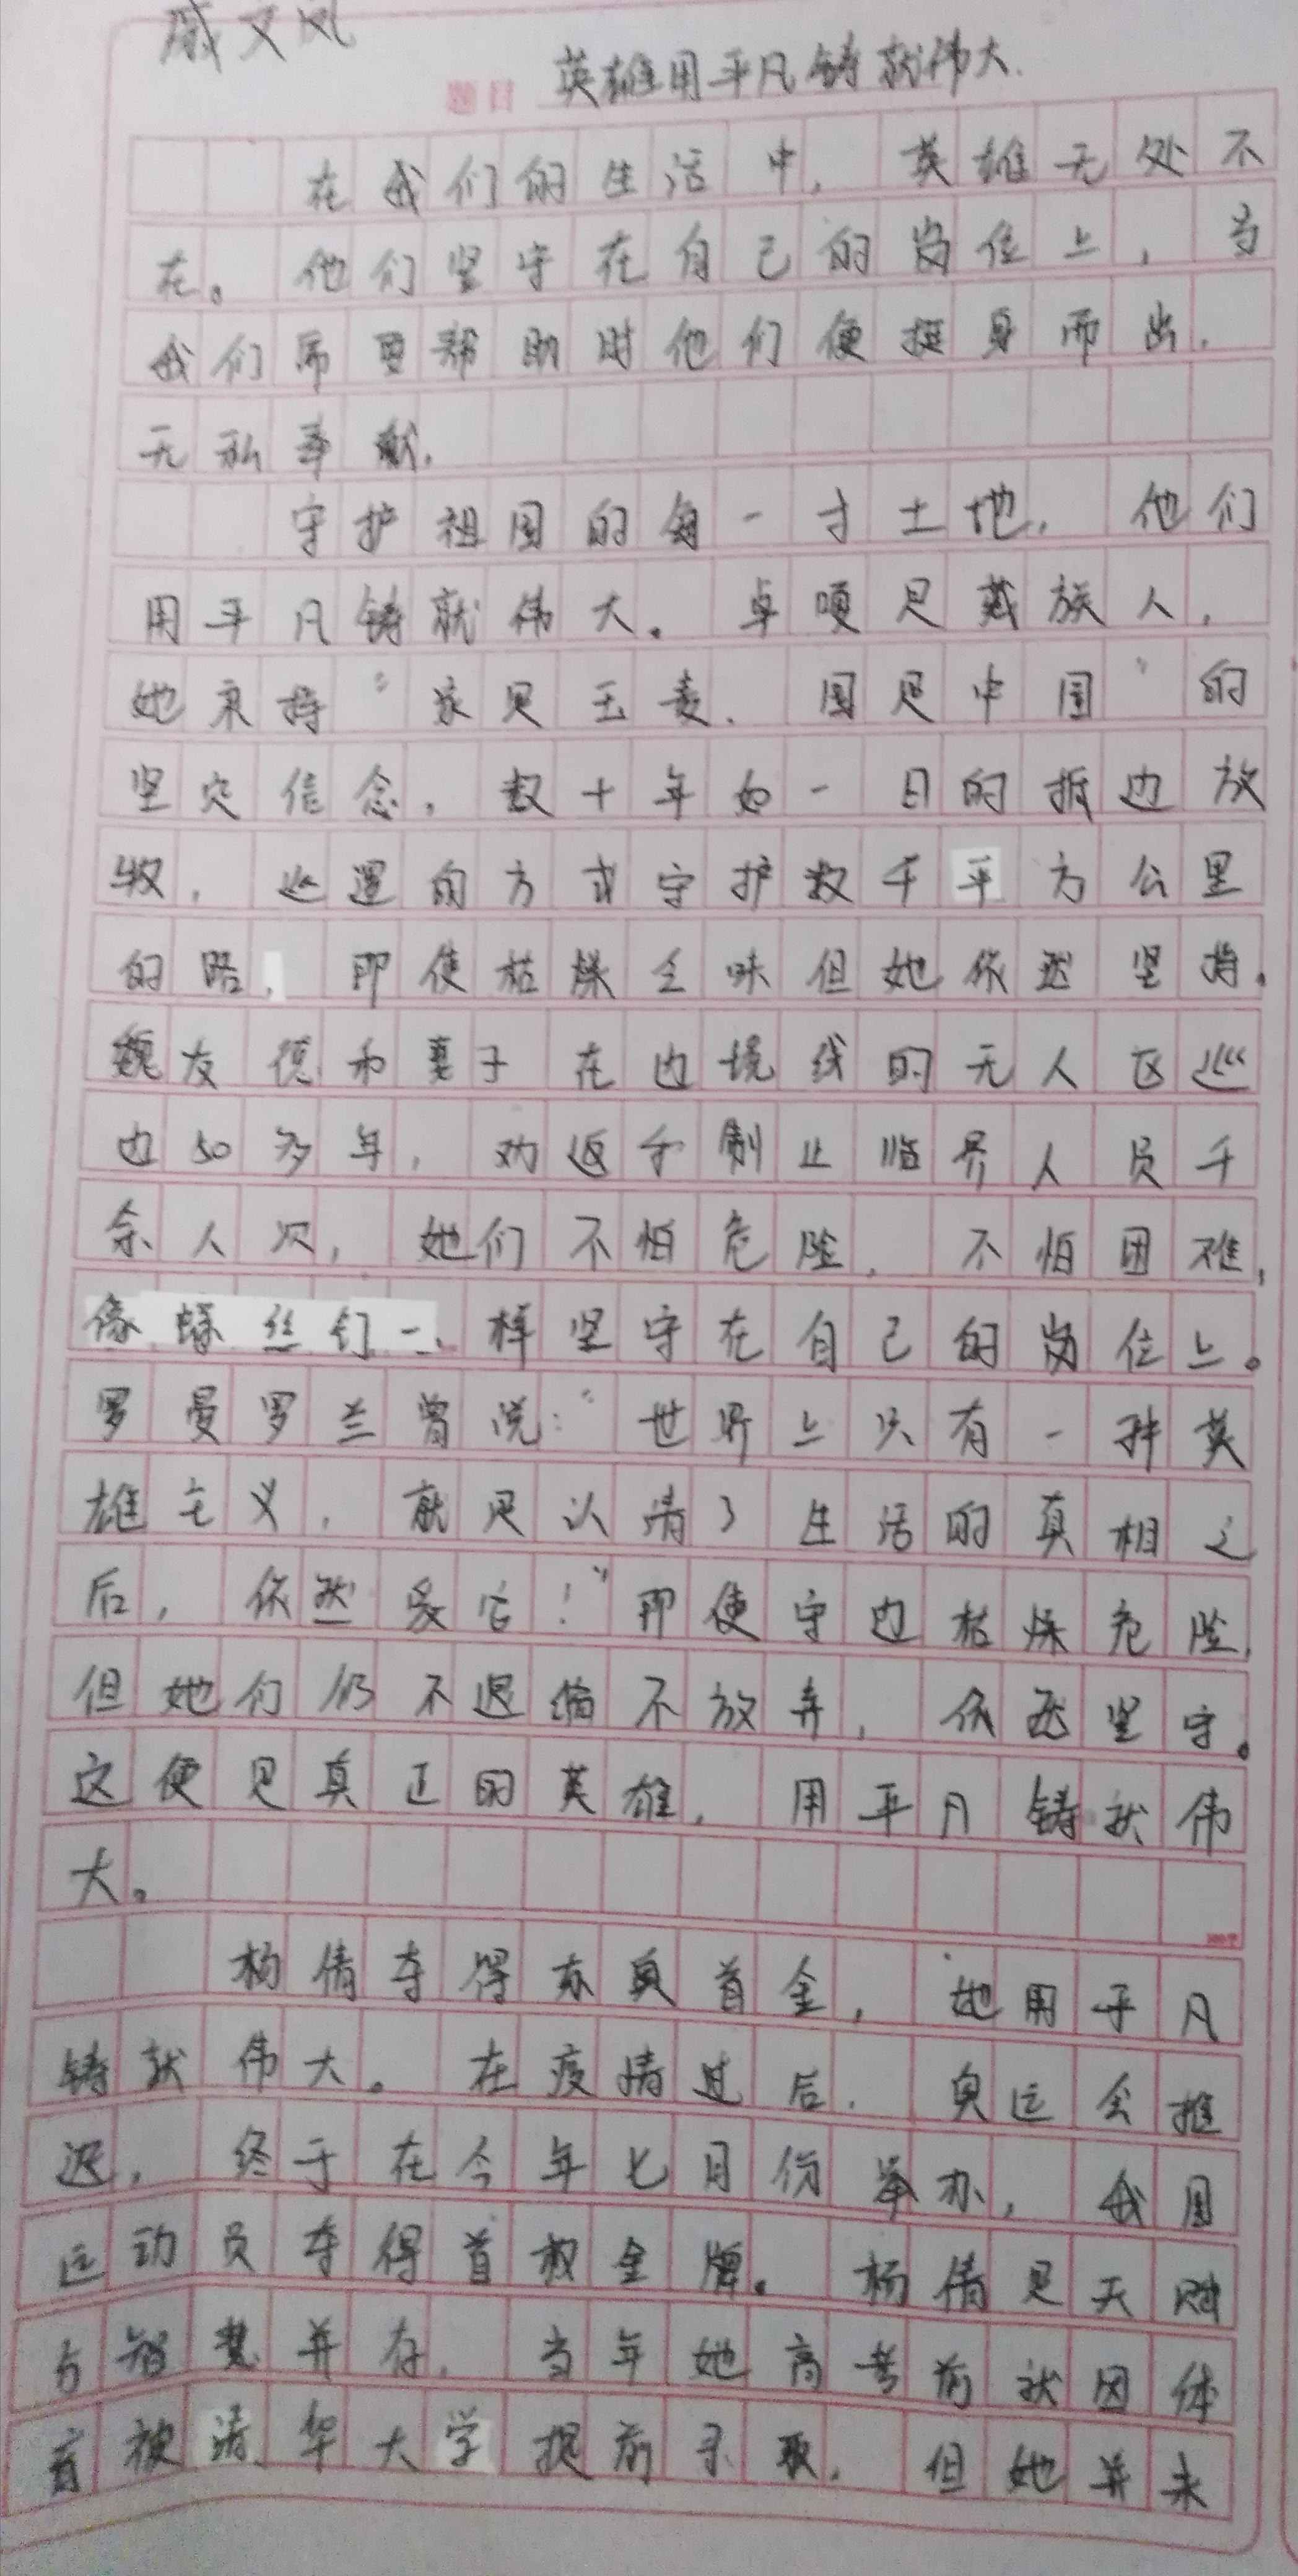 戚文凤
题目 英雄用平凡铸就伟大.
在我们的生活中，英雄无处不
在。他们坚守在自己的岗位上，当
我们需要帮助时他们便挺身而出，
无私奉献.
守护祖国的每一寸土地，他们
用平凡铸就伟大。卓嘎是藏族人，
她秉持“家是玉麦，国是中国”的
坚定信念，数十年如一日的抵边放
牧，巡逻的方式守护数千平方公里
的路，即使枯燥乏味但她依然坚持。
魏友德和妻子在边境线的无人区巡
边50多年，劝返和制止临界人员千
余人次，她们不怕危险，不怕困难，
像螺丝钉一样坚守在自己的岗位上。
罗曼罗兰曾说：“世界上只有一种英
雄主义，就是认清了生活的真相之
后，依然爱它！”即使守边枯燥危险，
但她们仍不退缩不放弃，依然坚守。
这便是真正的英雄，用平凡铸就伟
大。
杨倩夺得东奥首金，她用平凡
铸就伟大。在疫情过后，奥运会推
迟，终于在今年七月份举办，我国
运动员夺得首枚金牌。杨倩是天赋
与智慧并存，当年她高考前就因体
育被清华大学提前录取，但她并未